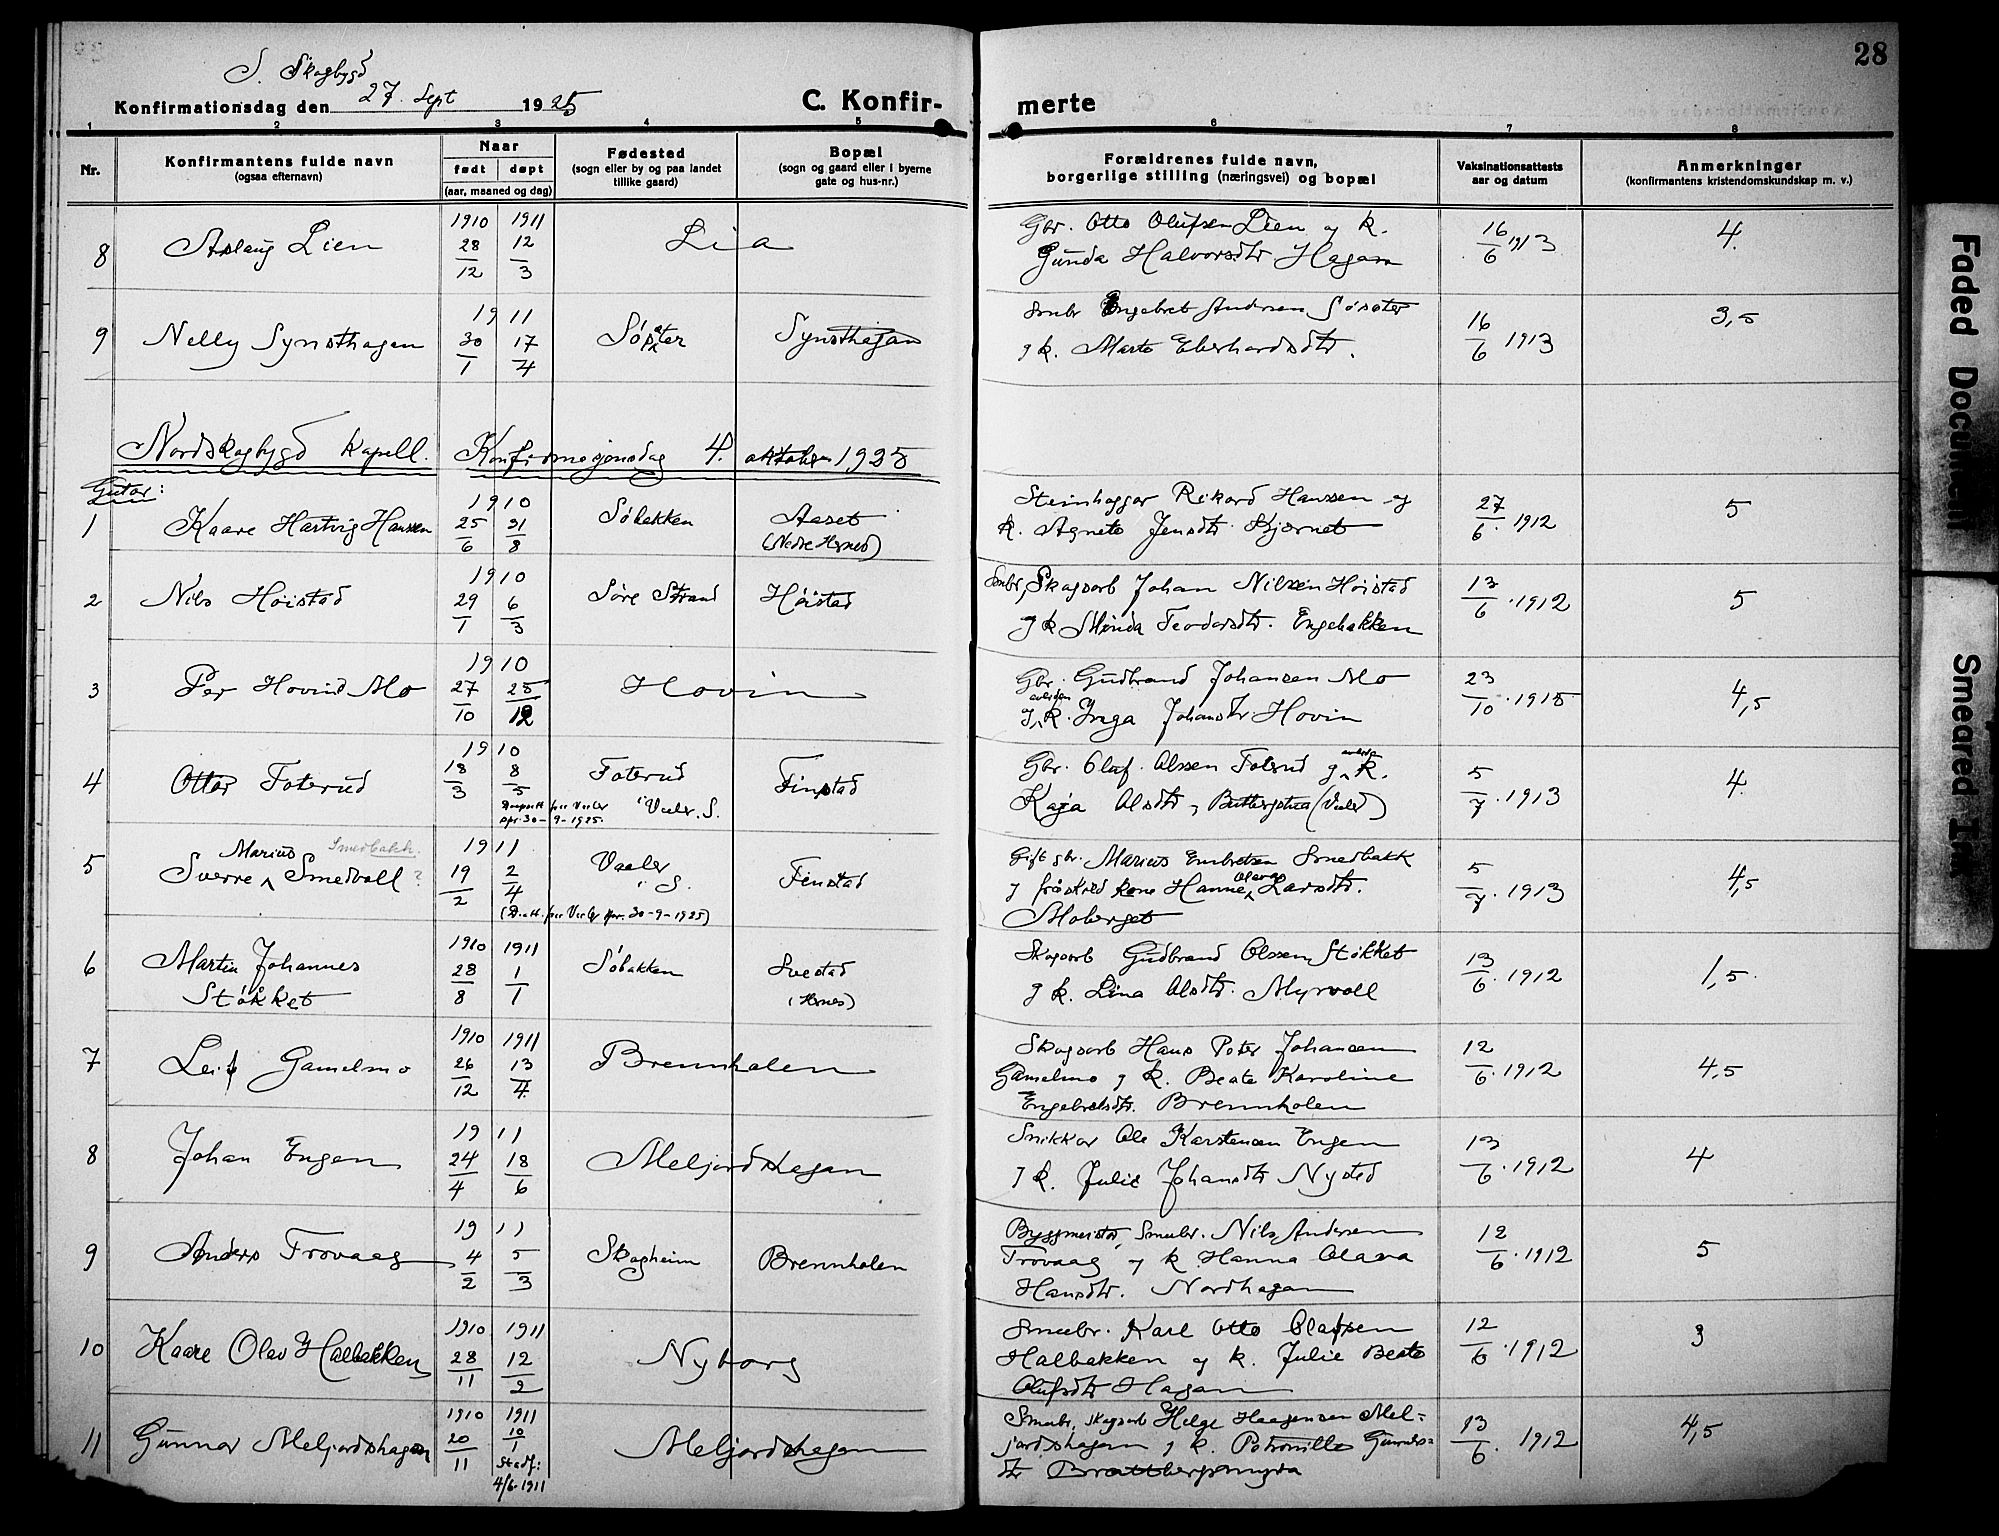 28
S. Skogbygd
Konfirmationsdag den 27. Sept 1925
C. Konfir-
merte
1 2 3 4 5 6 7 8
Nr.
Konfirmantens fulde navn
(ogsaa efternavn)
Naar
født døpt
(aar, maaned og dag)
Fødested
(sogn eller by og paa landet
tillike gaard)
Bopæl
(sogn og gaard eller i byerne
gate og hus-nr.)
Forældrenes fulde navn,
borgerlige stilling (næringsvei) og bopæl
Vaksinationsattests
aar og datum
Anmerkninger
(konfirmantens kristendomskundskap m. v.)
8 Aslaug Lien 1910 28/12 1911 12/3 Lia
Gbr. Otto Olufsen Lien og k.
Gunda Halvorsdtr Hagan
16/6 1913 4.
9 Nelly Synsthagen 1911 30/1 17/4 Søsæter Synsthagan
Smbr Engebret Andersen Søsæter
g k. Marte Eberhardsdtr.
16/6 1913 3,5
Nordskogbygd Kapell. Konfirmasjonsdag 4. oktober 1925
Gutar:
1 Kaare Hartvig Hansen 1910 25/6 21/8 Søbakken Aaset
(Nedre Hernes)
Steinhoggar Rikard Hanssen og
k. Agnete Jensdtr. Kjernet
27/6. 1912 5
2 Nils Høistad 1910 29/1 6/3 Søre Strand Høistad
Smbr, Skogsarb Johan Nilssen Høistad
g k Minda Teodorsdtr. Engebakken
13/6. 1912 5
3 Per Hovind Mo 1910 27/10 25/12 Hovin
Gbr. Gudbrand Johansen Mo
avliden
g k. Inga Johansdtr Hovin
23/10. 1915 4,5
4 Ottar Foterud 1910 18/3 8/5 Foterud Finstad
i Vaaler. S.
30-9-1925.
Gbr. Oluf. Olssen Foterud g k.
Kaja Olsdtr (Vaaler)
5/7. 1913 4
Marius Smedbakk.
5 Sverre Smedvoll ? 1911 19/2 2/4 Vaaler Finstad
i S.
30-9-1925)
Gift gbr. Marius Embretsen Smedbakk
g fraskild kone Hanne Olava Larsdtr.
Moberget
5/7. 1913 4,5
6 Martin Johannes 1910 28/8 1911 1/1 Søbakken Svestad
Støkket (Hernes)
Skogsarb Gudbrand Olssen Støkket
g k. Lina Olsdtr. Myrvoll
13/6. 1912 1,5
7 Leif Gamelmo 1910 26/12 1911 13/4. Brennholen
Skogsarb Hans Peter Johansen
Gamelmo g k. Beate Karoline
Engebretsdtr. Brennholen
12/6. 1912 4,5
8 Johan Engen 1911 24/4 18/6 Meljordshagan
Snikkar Ole Karstensen Engen
g k. Julie Johansdtr Nysted
13/6. 1912 4
9 Anders Trovaag 1911 4/2 5/3 Skogheim Brennholen
Byggmeister, Smabr. Nils Andersen
Trovaag g k. Hanna Olava
Hansdtr. Nordhagan
12/6. 1912 5
10 Kaare Olav Halbakken 1910 28/11 1911 12/2 Nyborg
Smaabr. Karl Otto Olafsen
Halbakken og k. Julie Beate
Olufsdtr Hagan
12/6. 1912 3
11 Gunnar Meljordshagan 1910 20/11 1911 10/1 Meljordshagan
Stadf:
4/6-1911
Smaabr, skogsarb Helge Haagensen Mel=
jordshagan g k. Petronille Gunders=
dtr Brattbergsmyra
13/6. 1912 4,5
Faded Document
Smeared Ink